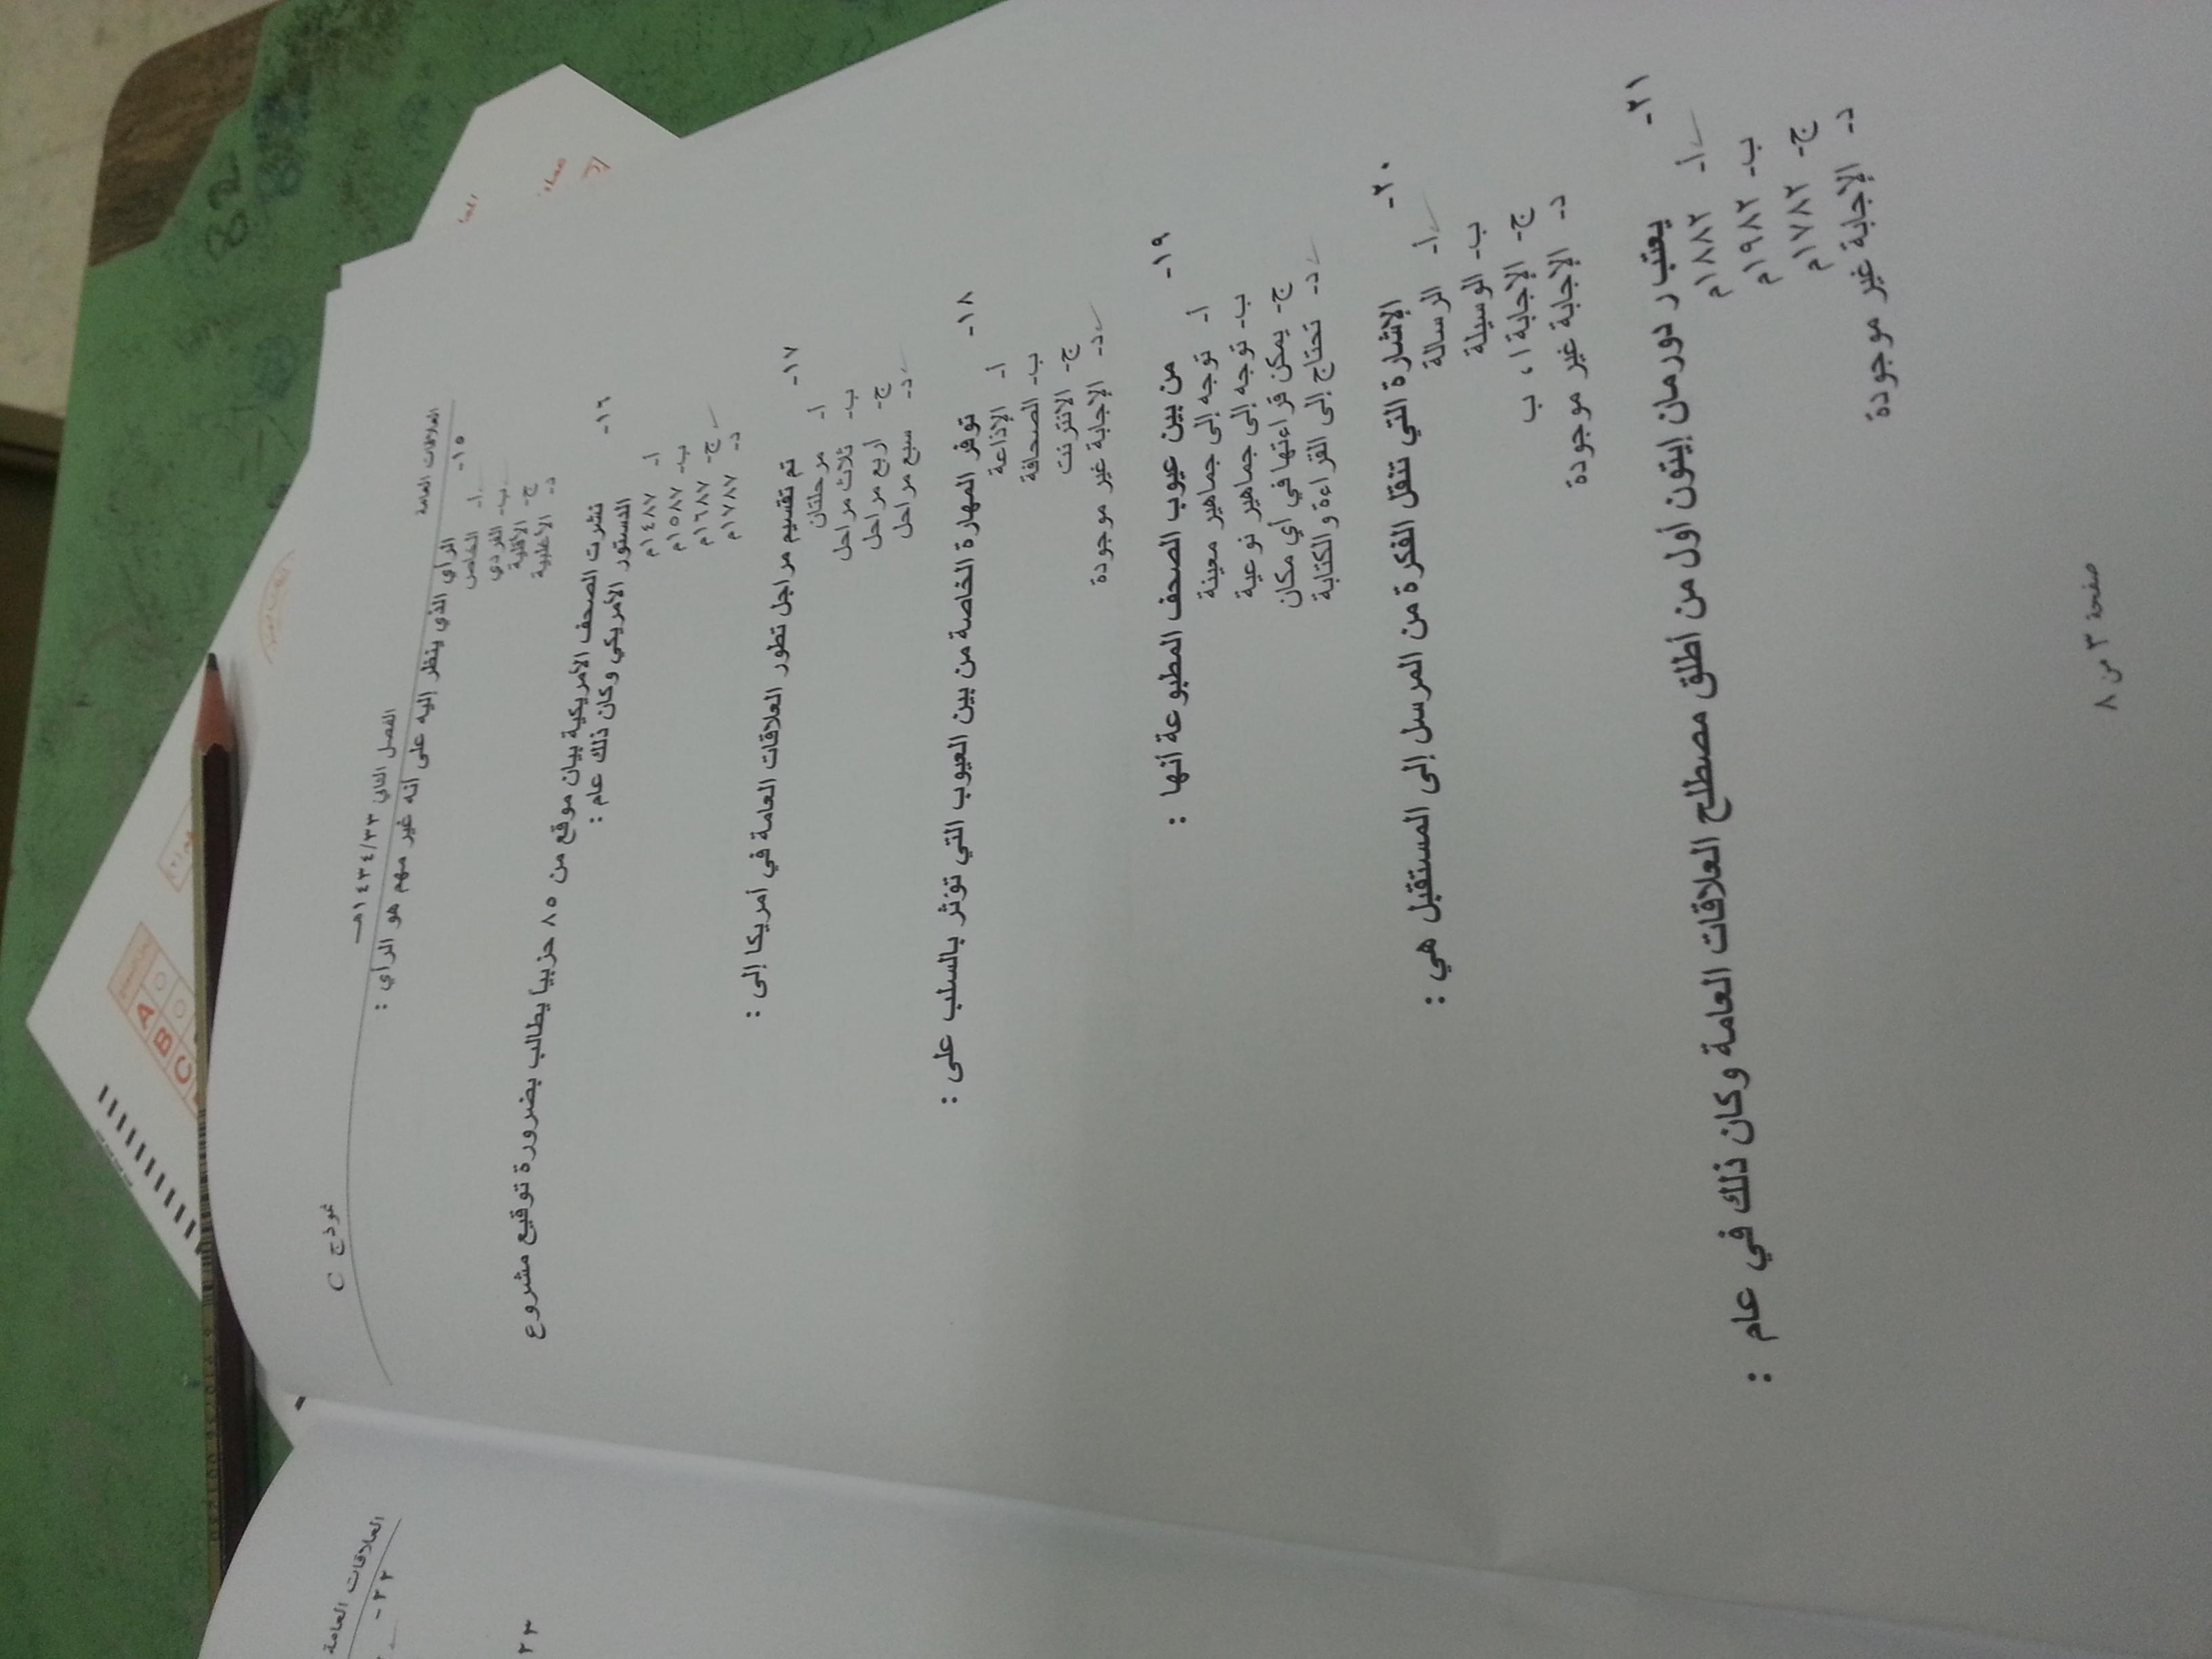 العلاقات العامة الفصل الثاني ١٤٣٤/٣٣هـ نموذج C
١٥- الرأي الذي ينظر إليه على أنه غير مهم هو الرأي :
أ- الخاص
ب- الفردي
ج- الأقلية
د- الأغلبية
١٦- نشرت الصحف الأمريكية بيان موقع من ٨٥ حزبياً يطالب بضرورة توقيع مشروع
الدستور الأمريكي وكان ذلك عام :
أ- ١٤٨٧م
ب- ١٥٨٧م
ج- ١٦٨٧م
د- ١٧٨٧م
١٧- تم تقسيم مراحل تطور العلاقات العامة في أمريكا إلى :
أ- مرحلتان
ب- ثلاث مراحل
ج- اربع مراحل
د- سبع مراحل
١٨- توفر المهارة الخاصة من بين العيوب التي تؤثر بالسلب على :
أ- الإذاعة
ب- الصحافة
ج- الانترنت
د- الإجابة غير موجودة
١٩- من بين عيوب الصحف المطبوعة أنها :
أ- توجه إلى جماهير معينة
ب- توجه إلى جماهير نوعية
ج- يمكن قراءتها في أي مكان
د- تحتاج إلى القراءة والكتابة
٢٠- الإشارة التي تنقل الفكرة من المرسل إلى المستقبل هي :
أ- الرسالة
ب- الوسيلة
ج- الإجابة أ ، ب
د- الإجابة غير موجودة
٢١- يعتبر دورمان إيتون أول من أطلق مصطلح العلاقات العامة وكان ذلك في عام :
أ- ١٨٨٢م
ب- ١٩٨٢م
ج- ١٧٨٢م
د- الإجابة غير موجودة
صفحة ٣ من ٨
العلاقات العامة
٢٢-
٢٣
A
B
C
B2